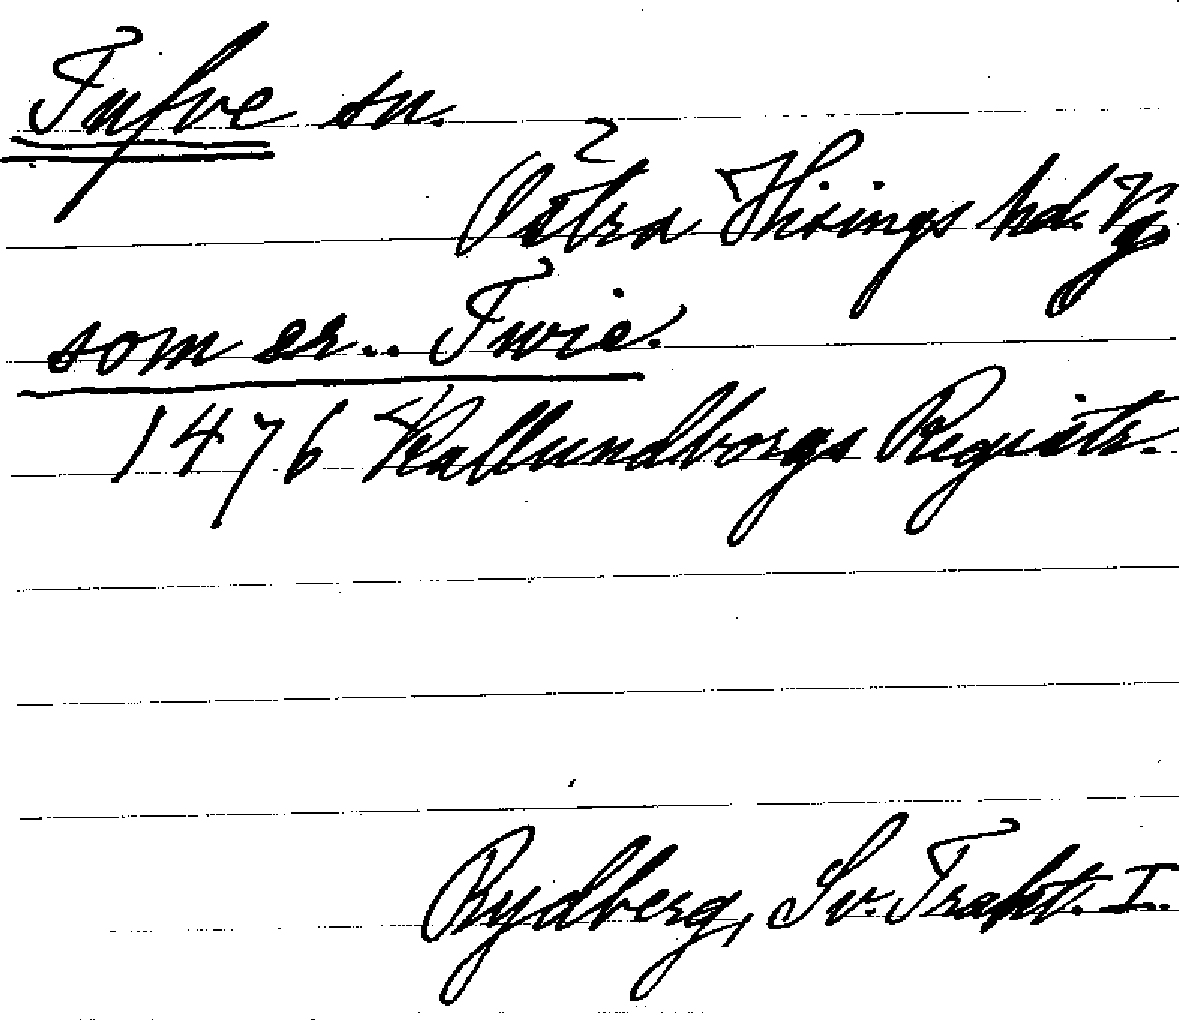 Tufve sn.
Östra Hisings hd. Vg
som er.. Twie.
1476 Kallundborgs Registr.
Rydberg, Sv. Trakt. I.